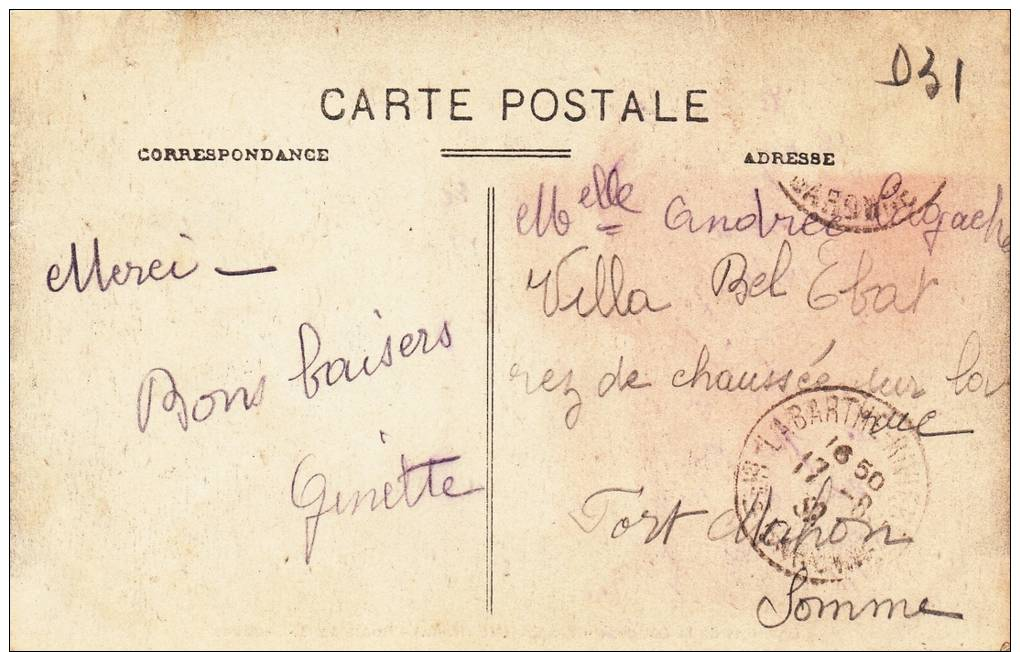 D31
CARTE POSTALE
CORRESPONDANCE
ADRESSE
Merci —
Bons baisers
Ginette
Melle Andrée Lagache
Villa Bel Ebat
rez de chaussée sur la
rue
Fort Mahon
Somme
LABARTHE-RIV
16 50
17 - 8
GARONNE